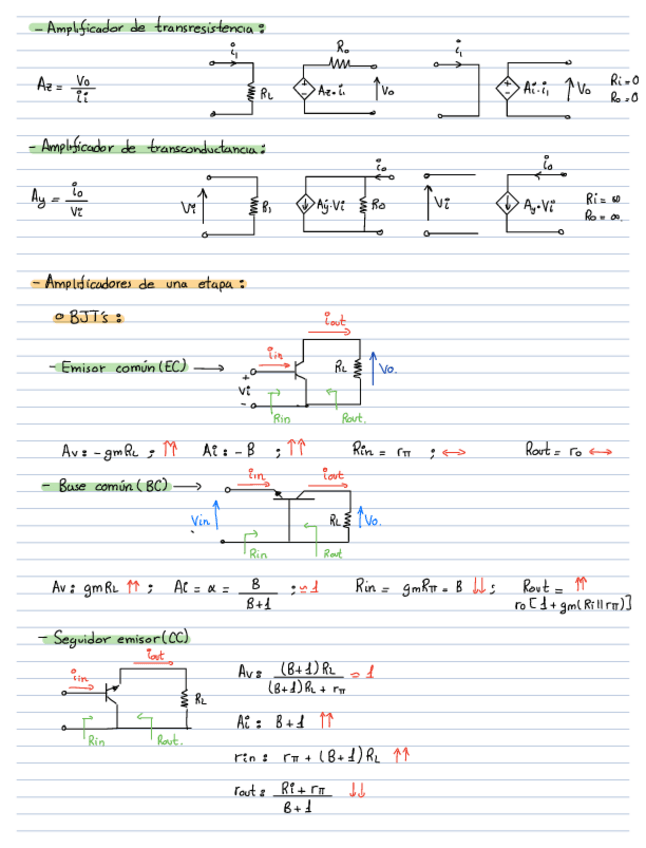 - Amplificador de transresistencia:
Az = Vo / ii
i1 RL Ro Az·i1 Vo i1 Ai·i1 Vo Ri=0
Ro=0
- Amplificador de transconductancia:
Ay = io / Vi
Vi Ri Ay·Vi Ro io Vi Ay·Vi io Ri = ∞
Ro = ∞
- Amplificadores de una etapa:
o BJT's:
iout
- Emisor común (EC) → iin RL Vo.
+ Vi -
Rin Rout.
Av: -gmRL ; ↑↑ Ai: -B ; ↑↑ Rin = rπ ; ↔ Rout = ro ↔
- Base común (BC) → iin iout
Vin RL Vo.
Rin Rout
Av: gmRL ↑↑ ; Ai = α = B / B+1 ; ≃1 Rin = gmRπ = B ↓↓ ; Rout = ↑↑
ro[1+gm(Ri||rπ)]
- Seguidor emisor (CC)
iin iout RL
Rin Rout.
Av: (B+1)RL / (B+1)RL + rπ ≃ 1
Ai: B+1 ↑↑
rin: rπ + (B+1)RL ↑↑
rout: Ri + rπ / B+1 ↓↓